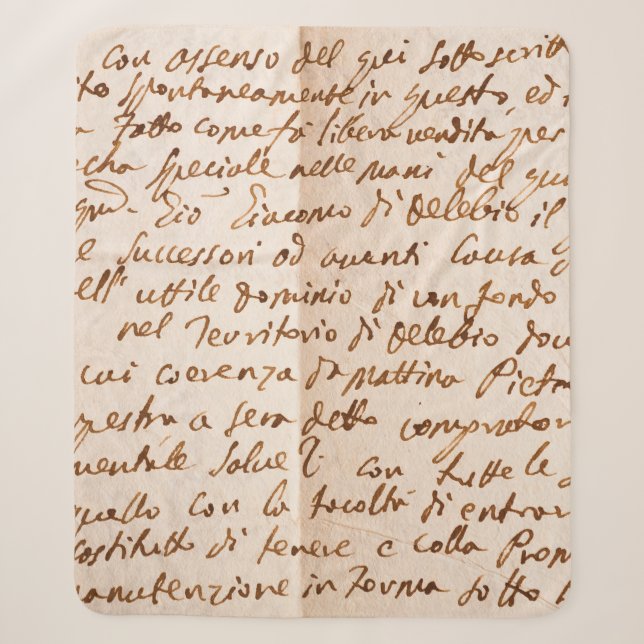 con assenso del qui sottoscritt
ito spontaneamente in questo, ed
Fatto come fà libera vendita per
cha speciale nelle mani del qui
qm. Gio Giacomo di Delebio il
e successori ed aventi causa
ell' uttile dominio di un fondo
nel Territorio di Delebio
cui coerenza da mattina Pietr
mpestra a sera detto comprator
mentale salue con tutte le
quello con la facoltà di entrar
Costitutto di tenere e colla Prom
manutenzione in Forma sotto